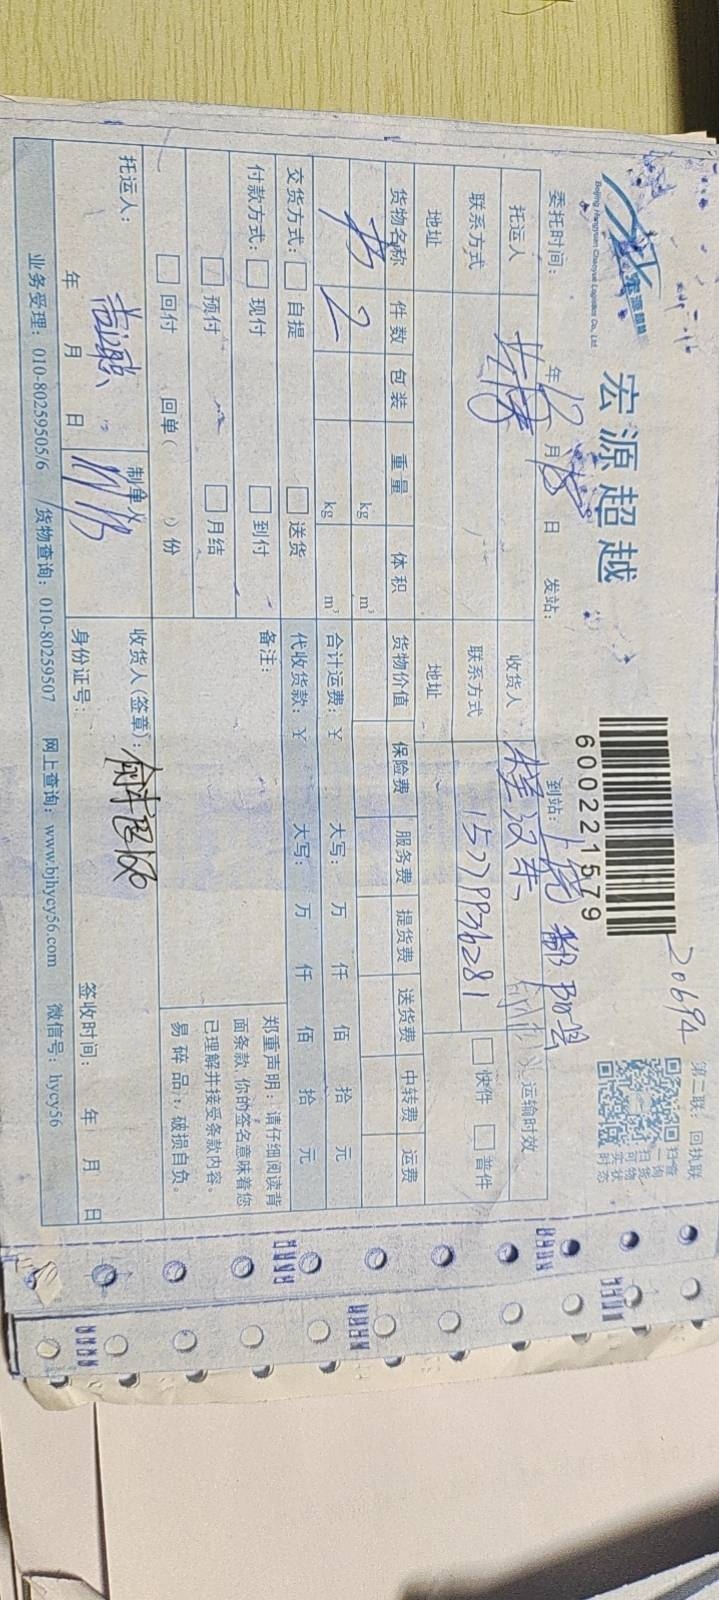 宏源超越
宏源超越
Beijing Hongyuan Chaoyue Logistics Co., Ltd.
600221579
20694
第二联：回执联
扫查
一询
扫货
可物
实状
时态
委托时间： 年 12 月 日 发站： 到站： 上饶 鄱阳县
托运人 收货人 运输时效
联系方式 联系方式 15779936281 快件 普件
地址 地址
货物名称 件数 包装 重量 体积 货物价值 保险费 服务费 提货费 送货费 中转费 运费
书 2 kg m³
kg m³ 合计运费：￥ 大写： 万 仟 佰 拾 元
交货方式： 自提 送货 代收货款：￥ 大写： 万 仟 佰 拾 元
付款方式： 现付 到付 备注：
预付 月结
回付 回单（ ）份
郑重声明：请仔细阅读背
面条款，你的签名意味着您
已理解并接受条款内容。
易碎品，破损自负。
托运人： 制单人 收货人（签章）：
年 月 日 身份证号： 签收时间： 年 月 日
业务受理：010-80259505/6 货物查询：010-80259507 网上查询：www.bjhycy56.com 微信号：hycy56